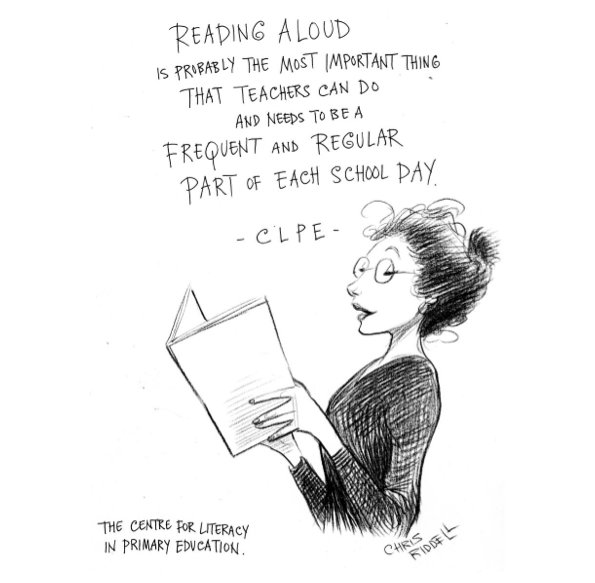 READING ALOUD
IS PROBABLY THE MOST IMPORTANT THING
THAT TEACHERS CAN DO
AND NEEDS TO BE A
FREQUENT AND REGULAR
PART OF EACH SCHOOL DAY.
- CLPE -
THE CENTRE FOR LITERACY
IN PRIMARY EDUCATION.
CHRIS
RIDDELL